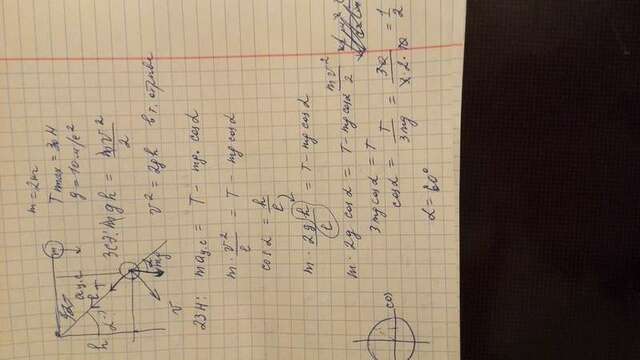 m = 2кг
T max = 30 Н
g = 10 м/с²
ЗСЭ: mgh = mv²/2
v² = 2gh в т. отрыва
2ЗН: maц.с = T - mg·cosα
m·v²/l = T - mg cosα
cosα = h/l
m·2gh/l = T - mg cosα
m·2g cosα = T - mg cosα
3mg cosα = T
cosα = T/3mg = 30/3·2·10 = 1/2
α = 60°
m
aц.с
T
l
h
α
mg
v
cos
mv²/2